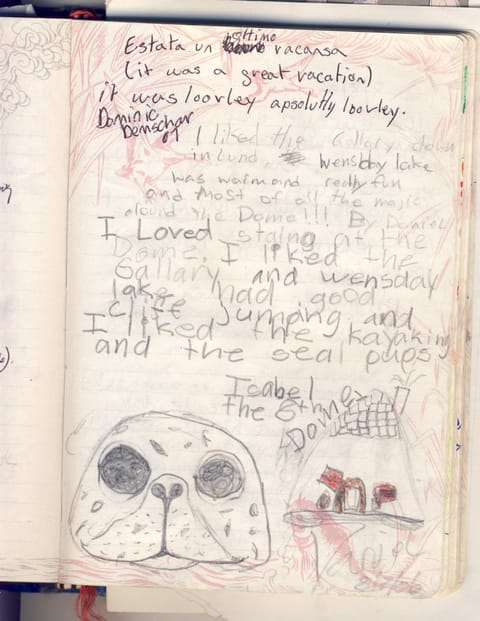 Estata un ottimo vacansa
(it was a great vacation)
it was loovley apsolutly loovley.
Dominic
Demschar
I liked the Gallary down
in Lund, Wensday lake
was warm and really fun
and most of all the magic
around the Dome!!! By Daniel
I Loved staing at the
Dome. I liked the
Gallary and wensday
lake had good
cliff jumping and
I liked the kayaking
and the seal pups
Isabel
the 8th
Dome